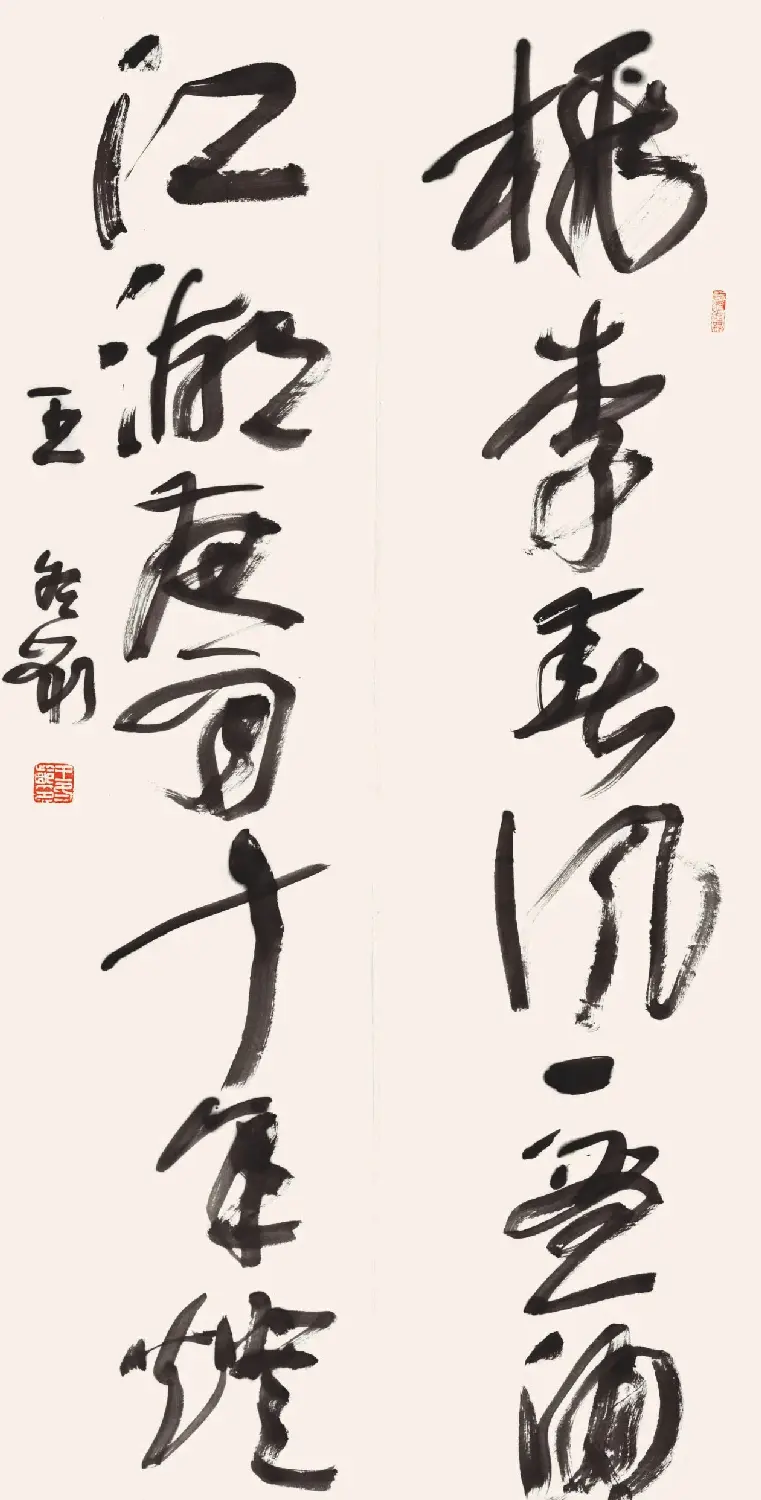 桃李春風一盃酒
江湖夜雨十年燈
王冬齡